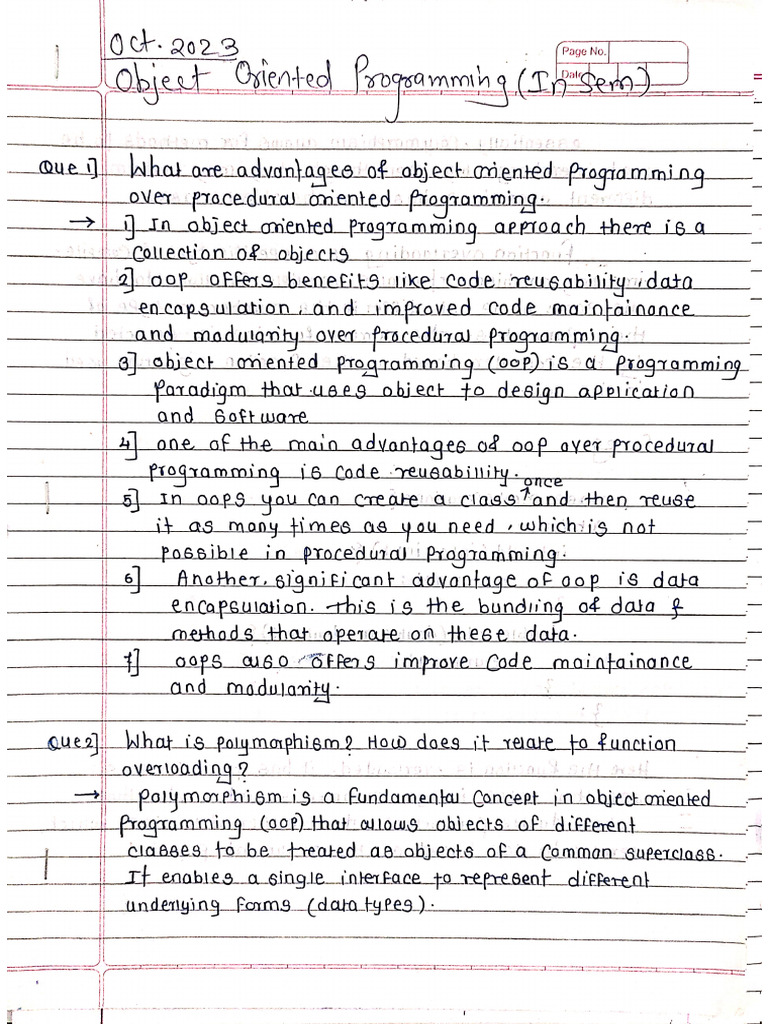 Oct. 2023
Page No.
Date
Object Oriented Programming (In Sem)
Que 1] What are advantages of object oriented programming
over procedural oriented programming.
→ 1] In object oriented programming approach there is a
collection of objects
2] oop offers benefits like code reusability, data
encapsulation, and improved code maintainance
and modularity over procedural programming.
3] object oriented programming (oop) is a programming
paradigm that uses object to design application
and software
4] one of the main advantages of oop over procedural
programming is code reusability.
once
5] In oops you can create a class ↑ and then reuse
it as many times as you need, which is not
possible in procedural programming.
6] Another, significant advantage of oop is data
encapsulation. This is the bundling of data &
methods that operate on these data.
7] oops also offers improve code maintainance
and modularity.
Que 2] What is polymorphism? How does it relate to function
overloading?
→ polymorphism is a fundamental concept in object oriented
programming (oop) that allows objects of different
classes to be treated as objects of a common superclass.
It enables a single interface to represent different
underlying forms (data types).